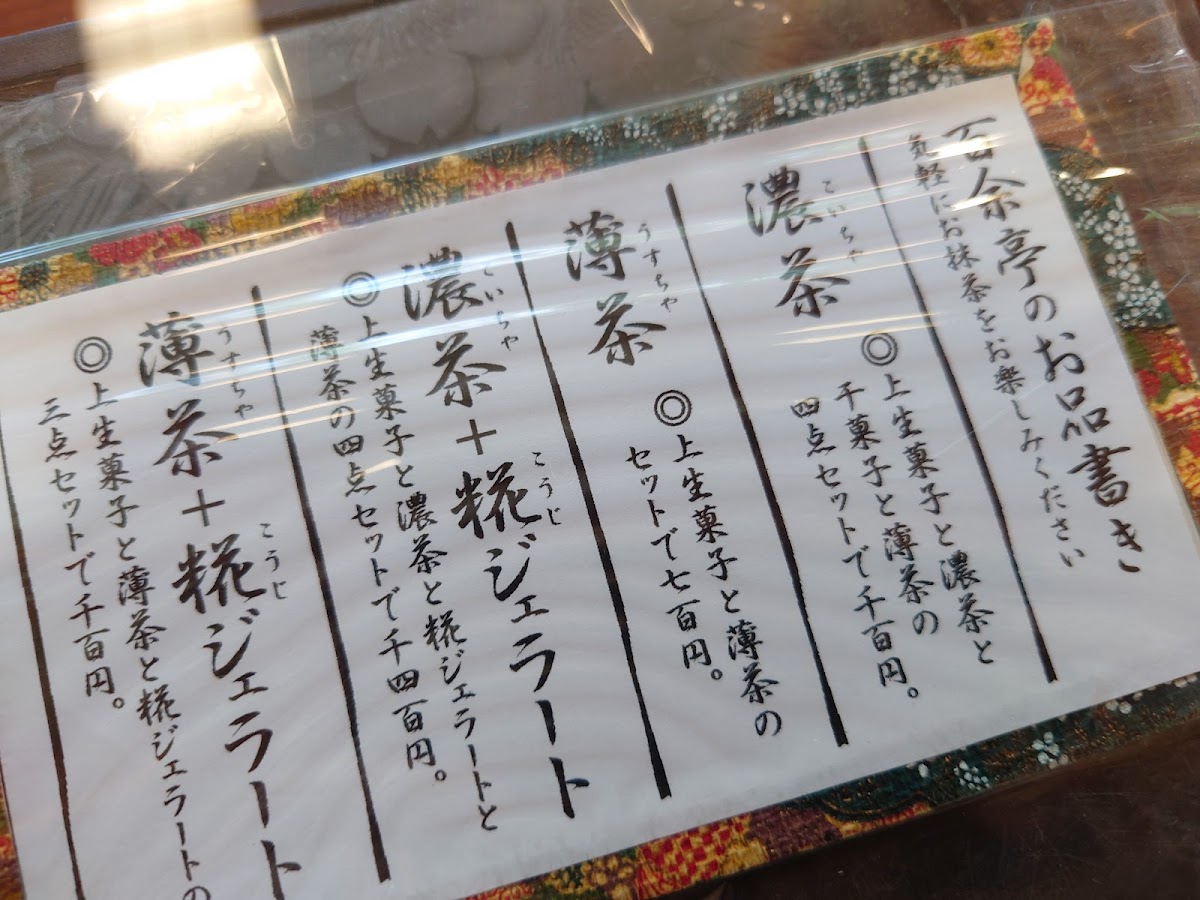 百余亭のお品書き
気軽にお抹茶をお楽しみください
こいちゃ
濃茶
◎上生菓子と濃茶と
千菓子と薄茶の
四点セットで千百円。
うすちゃ
薄茶
◎上生菓子と薄茶の
セットで七百円。
こいちゃ こうじ
濃茶+糀ジェラート
◎上生菓子と濃茶と糀ジェラートと
薄茶の四点セットで千四百円。
うすちゃ こうじ
薄茶+糀ジェラート
◎上生菓子と薄茶と糀ジェラートの
三点セットで千百円。